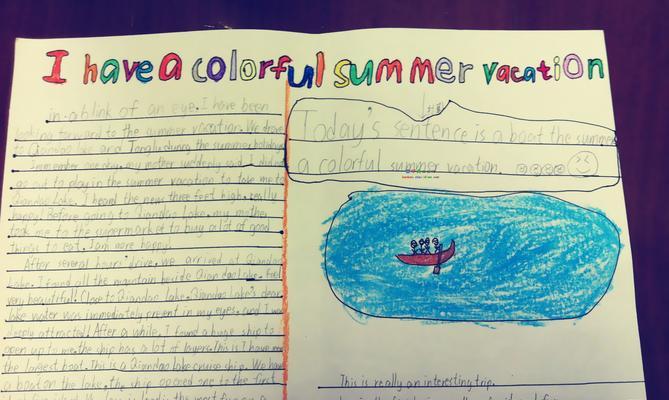 I have a colorful summer vacation
in a blink of an eye. I have been
looking forward to the summer vacation. We drove
to Qiandao Lake and Tangli during the summer holiday
I remember one day, my mother suddenly said I didn't
go out to play in the summer vacation to take me to
Qiandao Lake. I heard the news three feet high, really
happy! Before going to Qiandao Lake, my mother
took me to the supermarket to buy a lot of good
things to eat. I am more happy.
After several hours' drive, we arrived at Qiandao
Lake. I found all the mountain beside Qiandao Lake. Feel
very beautiful! Close to Qiandao lake. Qiandao Lake's clear
lake water was immediately in my eyes, and I was
deeply attracted! After a while, I found a huge ship to
open up to me, the ship has a lot of layers. This is I have
the largest boat. This is a Qiandao Lake cruise ship. We
a boat on the lake, the ship opened one to the first
Today's sentence is a boat the summer
a colorful summer vacation.
This is really an interesting trip.